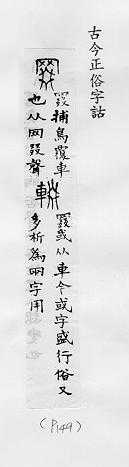 古今正俗字詁
罬
罬捕鳥覆車
也从网叕聲
輟
罬或从車今或字盛行俗又
多析為兩字用
(P.149)